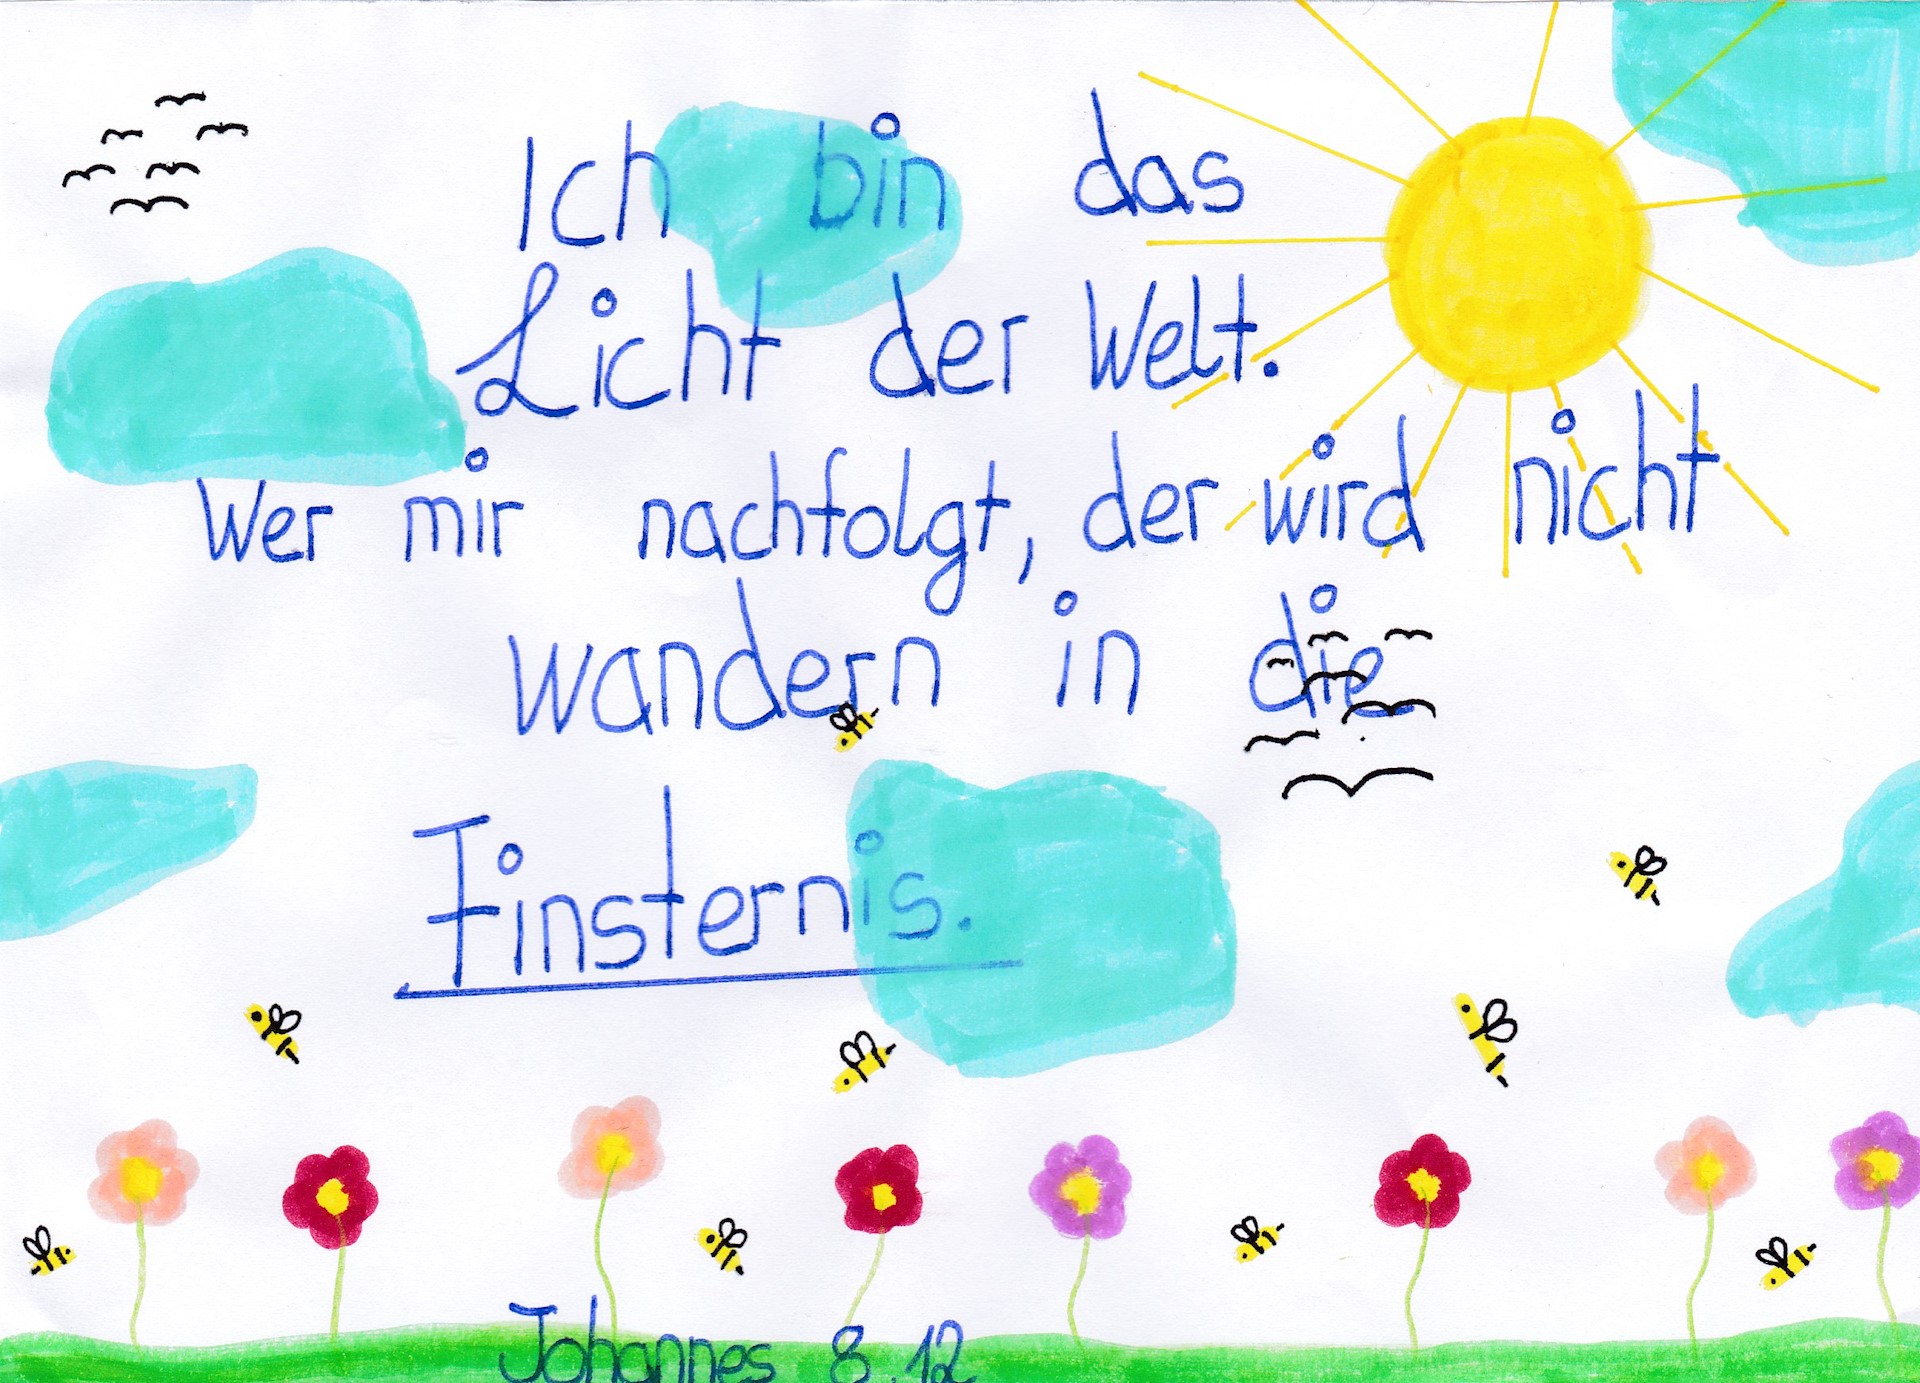 Ich bin das
Licht der Welt.
Wer mir nachfolgt, der wird nicht
wandern in die
Finsternis.
Johannes 8.12